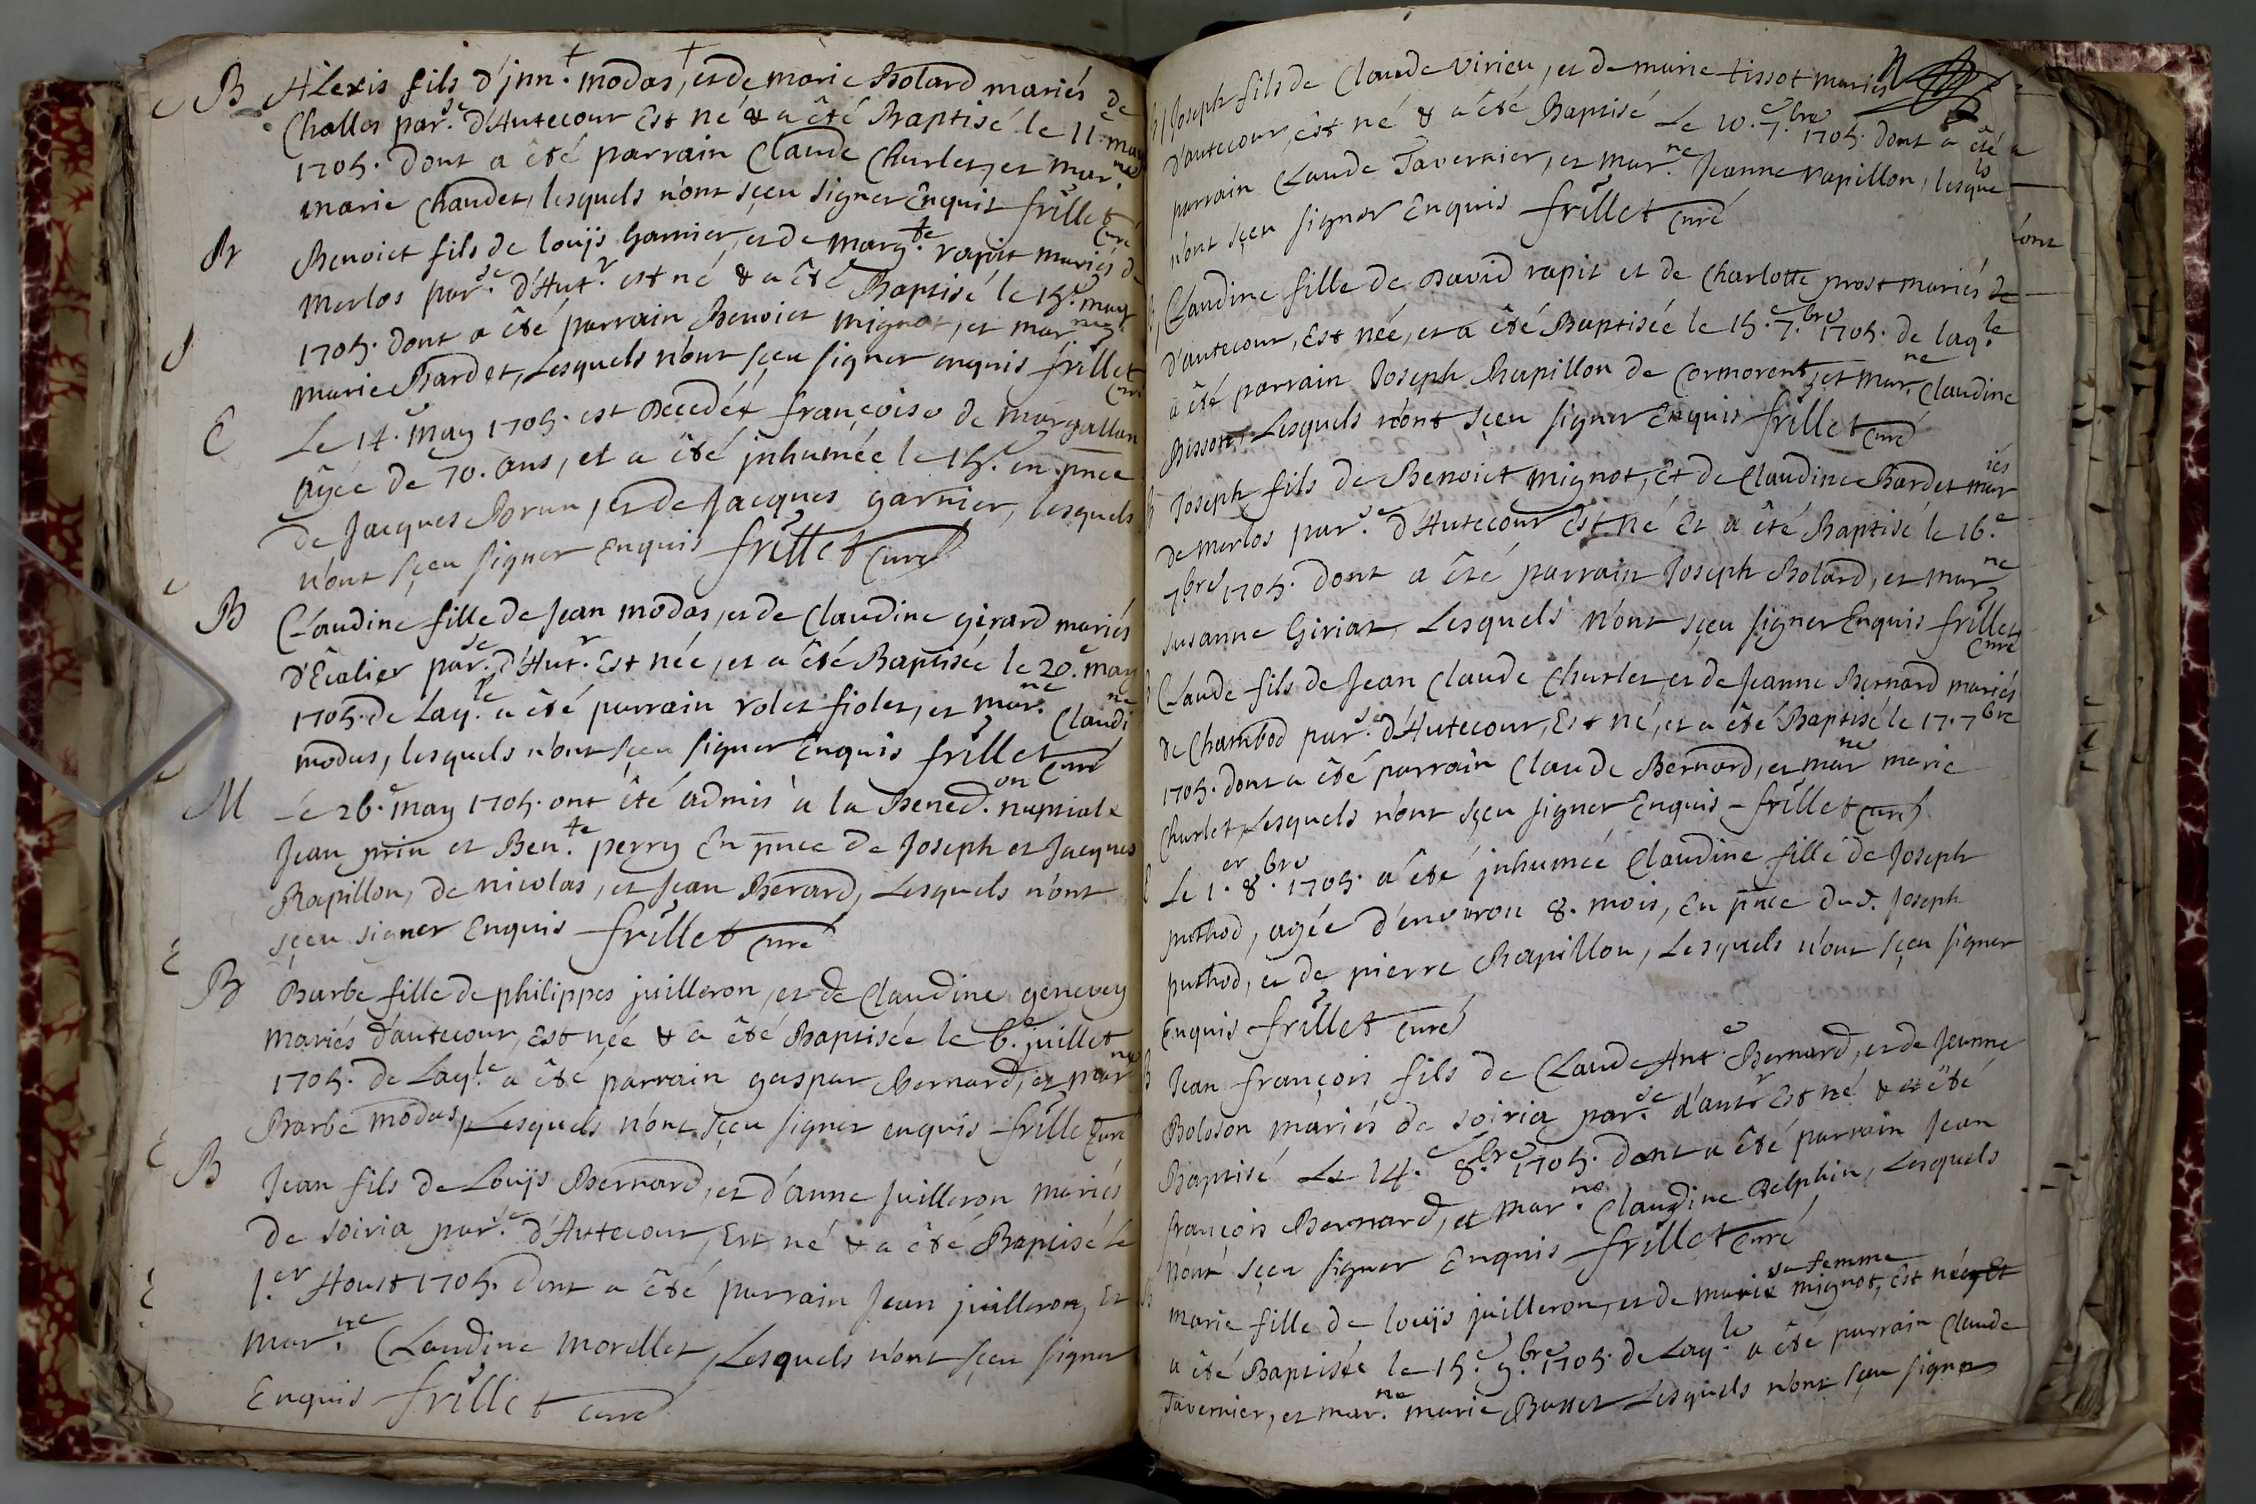 B Alexis fils d'jnn. modas, et de marie Bolard mariés de
Challes par.se d'Autecour Est né & a êté Baptisé le 11. may
1705. dont a êté parrain Claude Churlet, et mar.ne
marie Chaudet, lesquels n'ont sçeu signer Enquis frillet
Curé
B Benoict fils de louijs Garnier, et de marg.te rapit mariés de
Merlos par.se d'Aut.r est né & a êté Baptisé le 15.e may
1705. dont a êté parrain Benoict mignot, et mar.ne
marie Bardet, Lesquels n'ont sçeu signer enquis frillet
Curé
E Le 14.e May 1705. est Decedée françoise de margallan
âgée de 70. ans, et a êté jnhumée le 15.e en pnce
de Jacques Borun, et de Jacques garnier, lesquels
n'ont sçeu signer Enquis frillet Curé
B Claudine fille de Jean modas, et de Claudine gérard mariés
d'Ecalier par.se d'Aut.r Est née, et a êté Baptisée le 20.e may
1705. de Laq.le a êté parrain rolet fiolet, et mar.ne Claudine
modas, lesquels n'ont sçeu signer Enquis frillet Curé
M Le 26.e may 1705. ont êté admis à la Bened.on nuptiale
Jean prin et Ben.te perry En pnce de Joseph et Jacques
Rapillon, de nicolas, et Jean Berard, Lesquels n'ont
sçeu signer Enquis frillet Curé
B Barbe fille de philippes juilleron, et de Claudine genevey
mariés d'autecour, Est née & a êté Baptisée le 6.e juillet
1705. de Laq.le a êté parrain gaspar Bernard, et mar.ne
Barbe modas, Lesquels n'ont sçeu signer enquis frillet Curé
B Jean fils de Louijs Bernard, et d'anne Juilleron mariés
de soiria par.se d'Autecour, Est né & a êté Baptisé le
1.er Aoust 1705. dont a êté parrain Jean juilleron, Et
mar.ne Claudine morellet, Lesquels n'ont sçeu signer
Enquis frillet curé
Joseph fils de Claude virieu, et de marie tissot mariés
d'autecour, êst né & a êté Baptisé Le 10.e 7.bre 1705. dont a êté
parrain Claude Tavernier, et mar.ne Jeanne rapillon, lesquels
n'ont sçeu signer Enquis frillet Curé
Claudine fille de David rapit et de Charlotte prost mariés de
d'autecour, Est née, et a êté Baptisée le 15.e 7.bre 1705. de laq.le
a êté parrain Joseph Rapillon de Cormorent, et mar.ne Claudine
Bisson, Lesquels n'ont sçeu signer Enquis frillet Curé
Joseph fils de Benoict mignot, Et de Claudine Bardet mariés
de merlos par.se d'Autecour Est né Et a êté Baptisé le 16.e
7.bre 1705. Dont a êté parrain Joseph Bolard, et mar.ne
susanne Giriat, Lesquels n'ont sçeu signer Enquis frillet
Curé
Claude fils de Jean Claude Churlet, et de Jeanne Bernard mariés
de Chambod par.se d'Autecour, Est né, et a êté Baptisé le 17. 7bre
1705. dont a êté parrain Claude Bernard, et mar.ne marie
Churlet, Lesquels n'ont sçeu signer Enquis frillet curé
Le 1.er 8.bre 1705. a êté jnhumée Claudine fille de Joseph
puthod, agée d'environ 8. mois, En pnce dud. Joseph
puthod, et de pierre Rapillon, Lesquels n'ont sçeu signer
Enquis frillet Curé
Jean françois fils de Claude Ant.e Bernard, et de Jeanne
Boloson mariés de soiria par.se d'autr Est né & a êté
Baptisé Le 14.e 8.bre 1705. dont a êté parrain Jean
françois Bernard, et mar.ne Claudine Delphin, Lesquels
n'ont sçeu signer Enquis frillet Curé
sa femme
marie fille de louijs juilleron, et de marie mignot, êst née, Et
a êté Baptisée le 15.e 9.bre 1705. de Laq.le a êté parrain Claude
Tavernier, et mar.ne marie Busset Lesquels n'ont sçeu signer